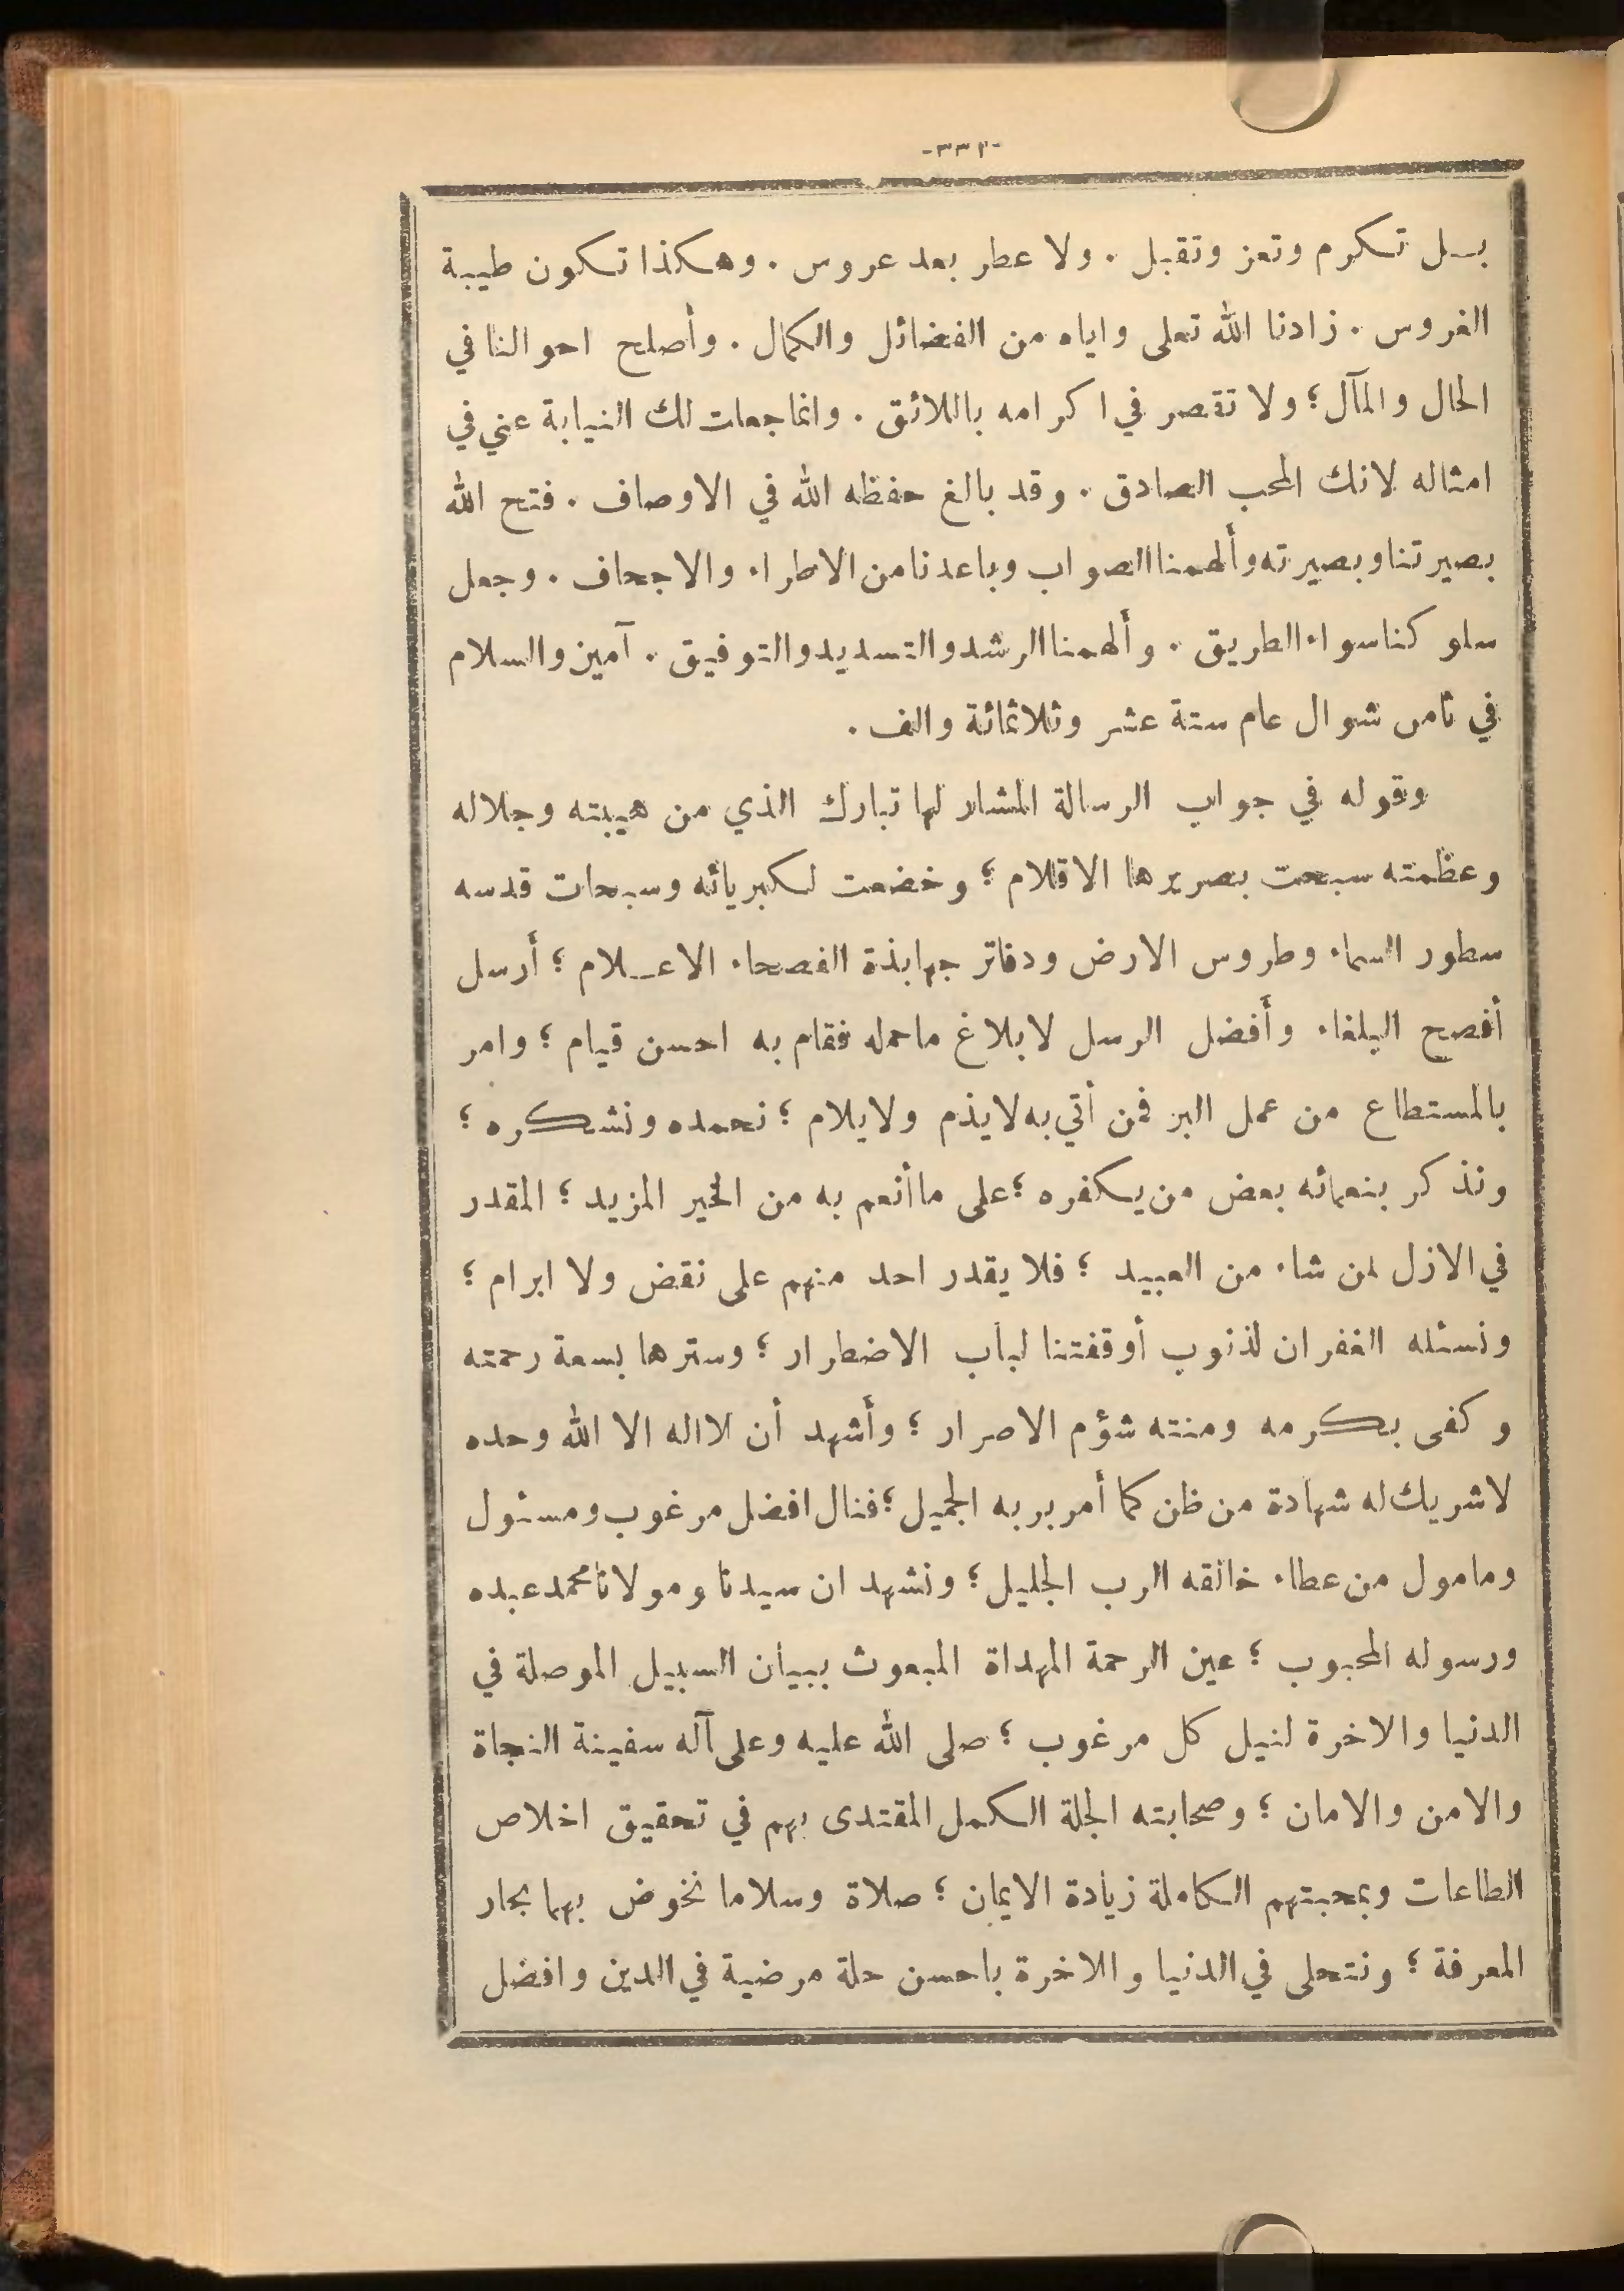 -٣٣٢-
بل تكرم وتعز وتقبل . ولا عطر بعد عروس . وهكذا تكون طيبة
الغروس . زادنا الله تعلى واياه من الفضائل والكمال . وأصلح احوالنا في
الحال والمآل ؛ ولا تقصر في اكرامه باللائق . وانما جعلت لك النيابة عني في
امثاله لانك المحب الصادق . وقد بالغ حفظه الله في الاوصاف . فتح الله
بصيرتنا وبصيرته وألهمنا الصواب وباعدنا من الاطراء والاجحاف . وجعل
سلوكنا سواء الطريق . وألهمنا الرشد والتسديد والتوفيق . آمين والسلام
في ثامن شوال عام ستة عشر وثلاثمائة والف .
وقوله في جواب الرسالة المشار لها تبارك الذي من هيبته وجلاله
وعظمته سبحت بصريرها الاقلام ؛ وخضعت لكبريائه وسبحات قدسه
سطور السماء وطروس الارض ودفاتر جهابذة الفصحاء الاعلام ؛ أرسل
أفصح البلغاء وأفضل الرسل لابلاغ ما حمله فقام به احسن قيام ؛ وامر
بالمستطاع من عمل البر فمن أتي به لا يذم ولا يلام ؛ نحمده ونشكره ؛
ونذكر بنعمائه بعض من يكفره ؛ على ما أنعم به من الخير المزيد ؛ المقدر
في الازل لمن شاء من العبيد ؛ فلا يقدر احد منهم على نقض ولا ابرام ؛
ونسئله الغفران لذنوب أوقفتنا لباب الاضطرار ؛ وسترها بسعة رحمته
وكفى بكرمه ومنته شؤم الاصرار ؛ وأشهد أن لا اله الا الله وحده
لا شريك له شهادة من ظن كما أمر بربه الجميل ؛ فنال افضل مرغوب ومسئول
ومامول من عطاء خالقه الرب الجليل ؛ ونشهد ان سيدنا ومولانا محمد عبده
ورسوله المحبوب ؛ عين الرحمة المهداة المبعوث ببيان السبيل الموصلة في
الدنيا والاخرة لنيل كل مرغوب ؛ صلى الله عليه وعلى آله سفينة النجاة
والامن والامان ؛ وصحابته الجلة الكمل المقتدى بهم في تحقيق اخلاص
الطاعات وبمحبتهم الكاملة زيادة الايمان ؛ صلاة وسلاما نخوض بهما بحار
المعرفة ؛ ونتحلى في الدنيا والاخرة باحسن حلة مرضية في الدين وافضل